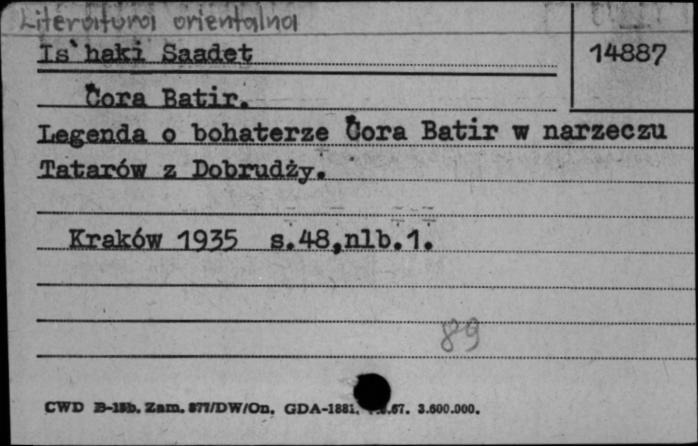 Literatura orientalna
Is`haki Saadet
14887
Čora Batir.
Legenda o bohaterze Čora Batir w narzeczu
Tatarów z Dobrudży.
Kraków 1935 s.48,nlb.1.
89
CWD B-15b. Zam. 877/DW/On. GDA-1881. 67. 3.600.000.